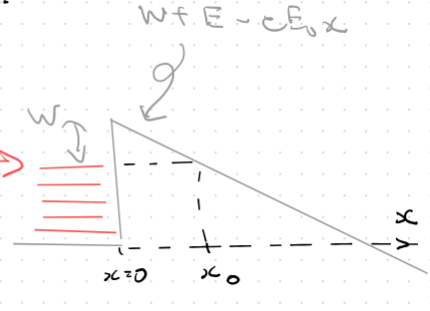 W + E - eE₀x
W
x
x=0
x₀